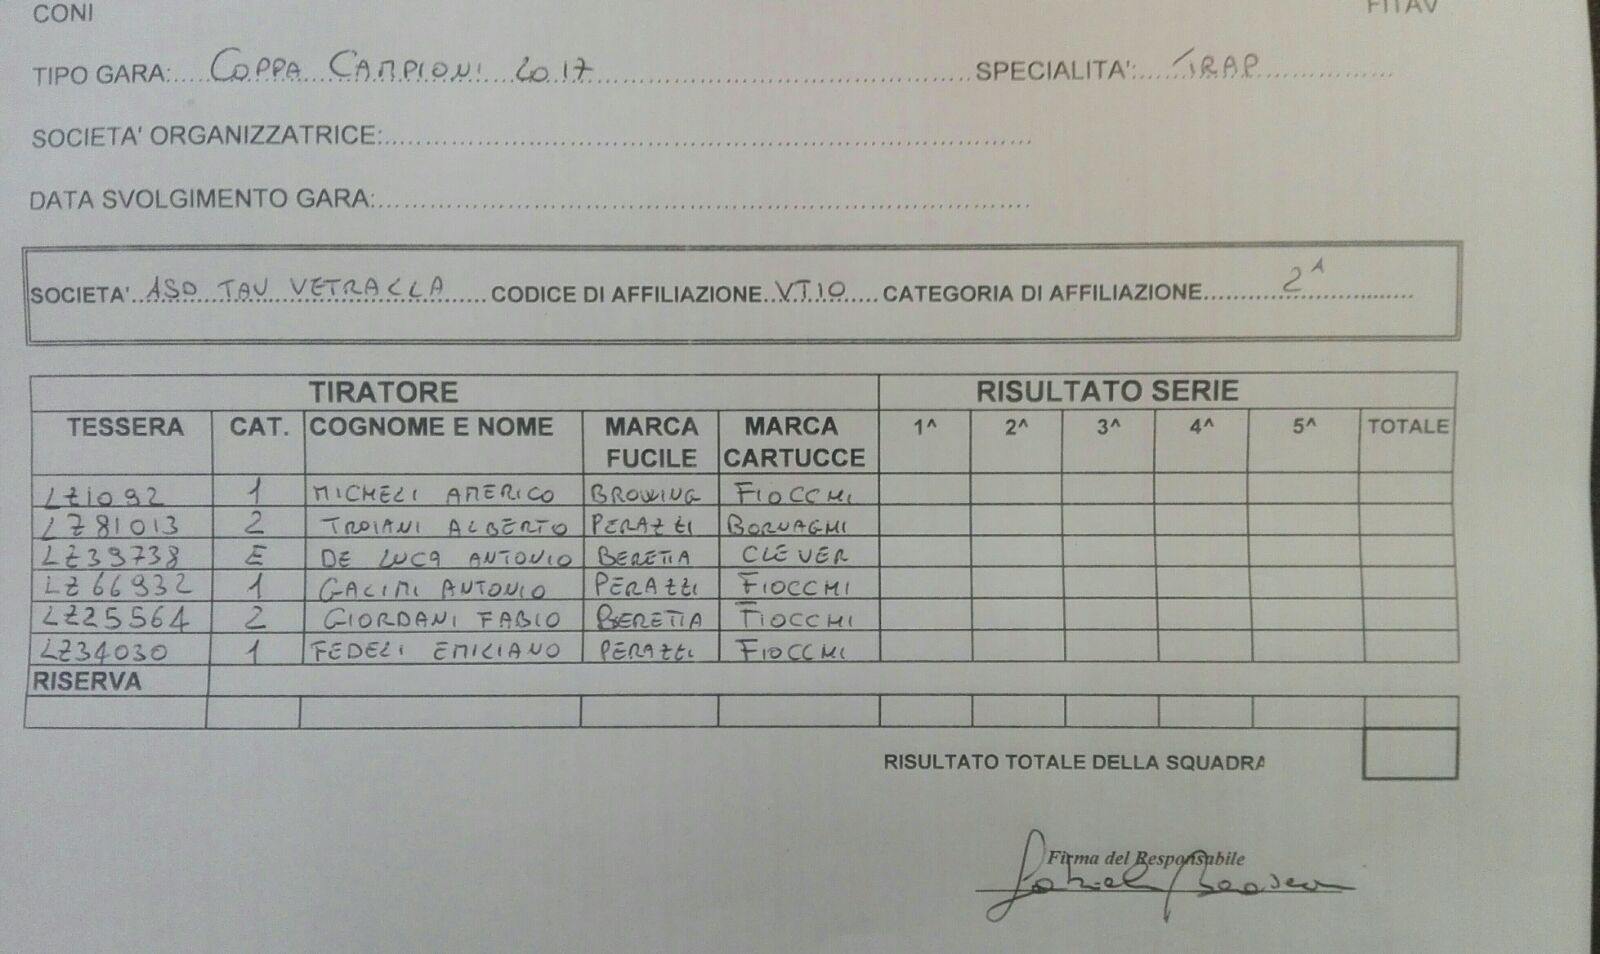 CONI FITAV
TIPO GARA: COPPA CAMPIONI 2017 SPECIALITA': TRAP
SOCIETA' ORGANIZZATRICE:
DATA SVOLGIMENTO GARA:
SOCIETA' ASD TAV VETRALLA CODICE DI AFFILIAZIONE VT10 CATEGORIA DI AFFILIAZIONE 2^
TIRATORE RISULTATO SERIE
TESSERA CAT. COGNOME E NOME MARCA FUCILE MARCA CARTUCCE 1^ 2^ 3^ 4^ 5^ TOTALE
LZ1092 1 MICHELI AMERICO BROWING FIOCCHI
LZ81013 2 TROIANI ALBERTO PERAZZI BORNAGHI
LZ39738 E DE LUCA ANTONIO BERETTA CLEVER
LZ66932 1 GALIMI ANTONIO PERAZZI FIOCCHI
LZ25564 2 GIORDANI FABIO BERETTA FIOCCHI
LZ34030 1 FEDELI EMILIANO PERAZZI FIOCCHI
RISERVA
RISULTATO TOTALE DELLA SQUADRA
Firma del Responsabile